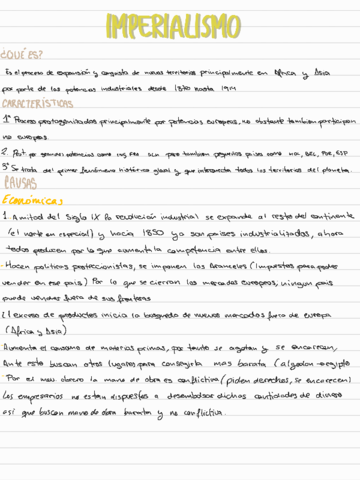 IMPERIALISMO
¿QUÉ ES?
Es el proceso de expansión y conquista de nuevos territorios principalmente en África y Asia
por parte de las potencias industriales desde 1870 hasta 1914
CARACTERÍSTICAS
1º Proceso protagonizado principalmente por potencias europeas, no obstante tambien participan
no europeas.
2. Part. po grandes potencias como ing, FRA pero tambien pequeños países como HOL, BEL, POR, ESP
3º Se trata del primer fenómeno histórico global y que interconecta todos los territorios del planeta.
CAUSAS
ECONÓMICAS
1. A mitad del Siglo IX la revolución industrial se expande al resto del continente
(el norte en especial) y hacia 1850 ya son países industrializados, ahora
todos producen por lo que aumenta la competencia entre ellos.
· Hacen políticas proteccionistas, se imponen los Aranceles (Impuestos para poder
vender en ese país) Por lo que se cierran los mercados Europeos, ningún país
puede vender fuera de sus fronteras
El exceso de productos inicia la búsqueda de nuevos mercados fuera de europa
(Africa y Asia)
Aumenta el consumo de materias primas, por tanto se agotan y se encarecen,
Ante esto buscan otros lugares para conseguirla mas barata (algodon → egipto
Por el mov obrero la mano de obra es conflictiva (piden derechos, se encarecen)
Los empresarios no estan dispuestos a desembolsar dichas cantidades de dinero
así que buscan mano de obra barata y no conflictiva.